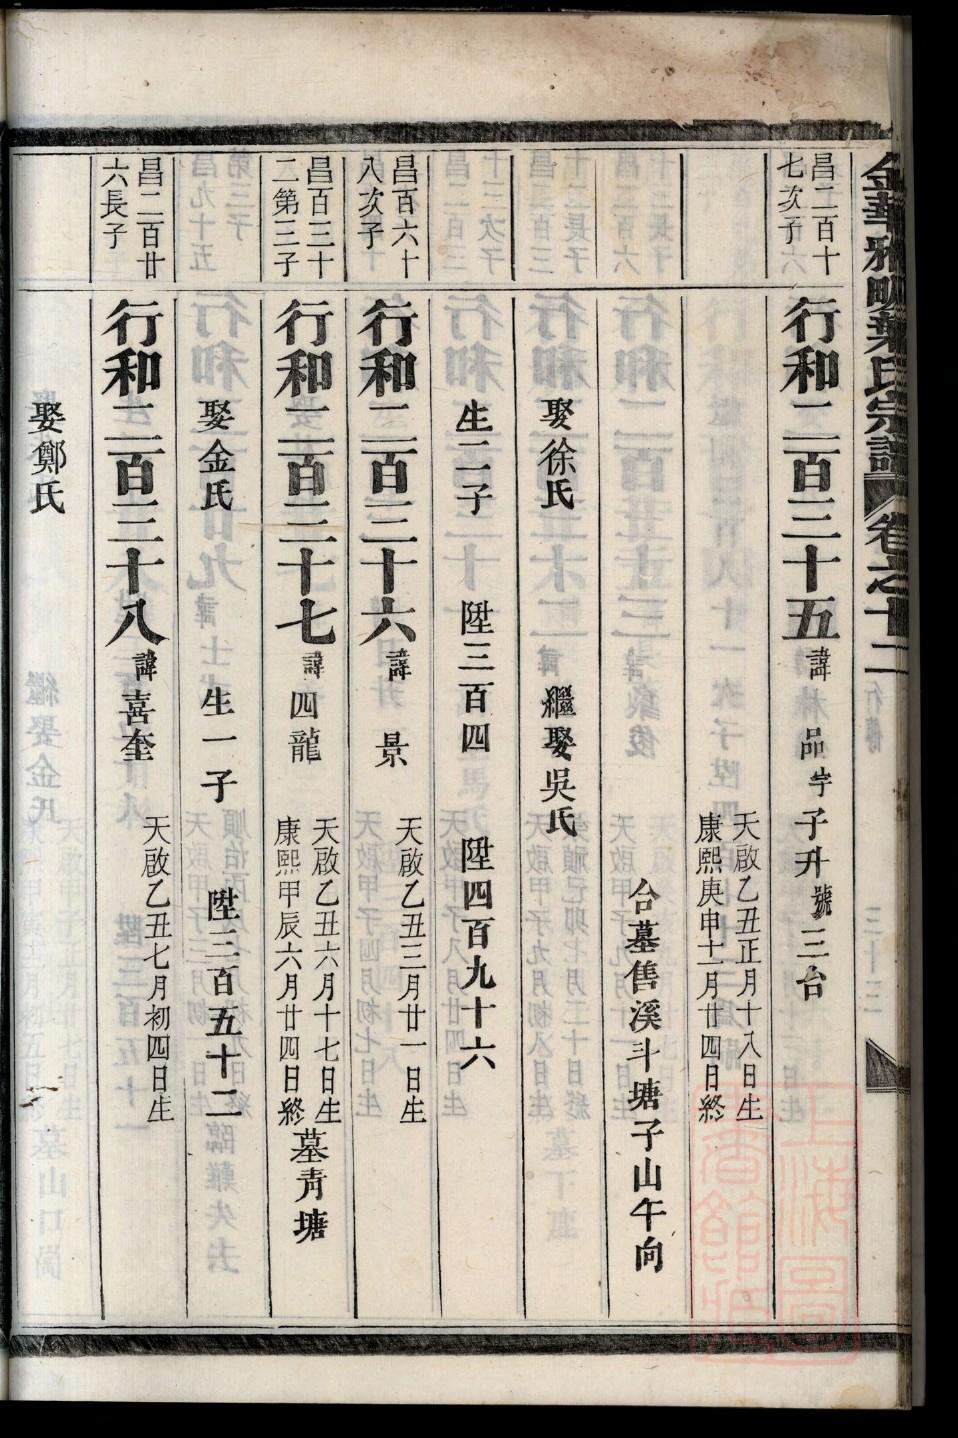 金華雅畈葉氏宗譜 卷之十二
昌二百十七次子
行和二百三十五 諱 品 字 子升 號 三台
天啟乙丑正月十八日生
康熙庚申十一月廿四日終
合墓售溪斗塘子山午向
娶徐氏 繼娶吳氏
生二子 陞三百四 陞四百九十六
昌百六十八次子
行和二百三十六 諱 景
天啟乙丑三月廿一日生
昌百三十二第三子
行和二百三十七 諱 四龍
天啟乙丑六月十七日生
康熙甲辰六月廿四日終
墓青塘
娶金氏 生一子 陞三百五十二
昌二百廿六長子
行和二百三十八 諱 喜奎
天啟乙丑七月初四日生
娶鄭氏